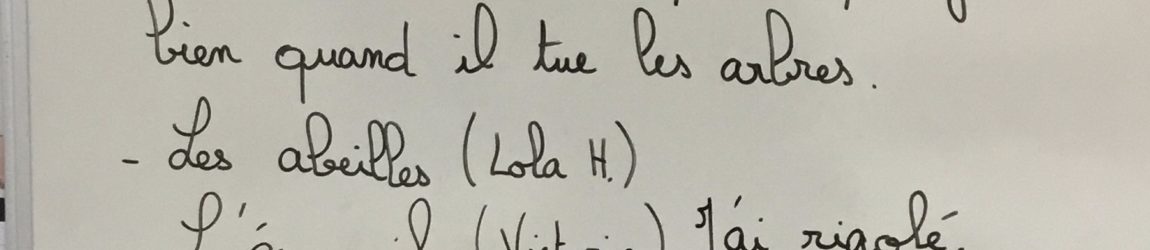 bien quand il tue les arbres.
- Les abeilles (Lola H.)
J'ai rigolé.